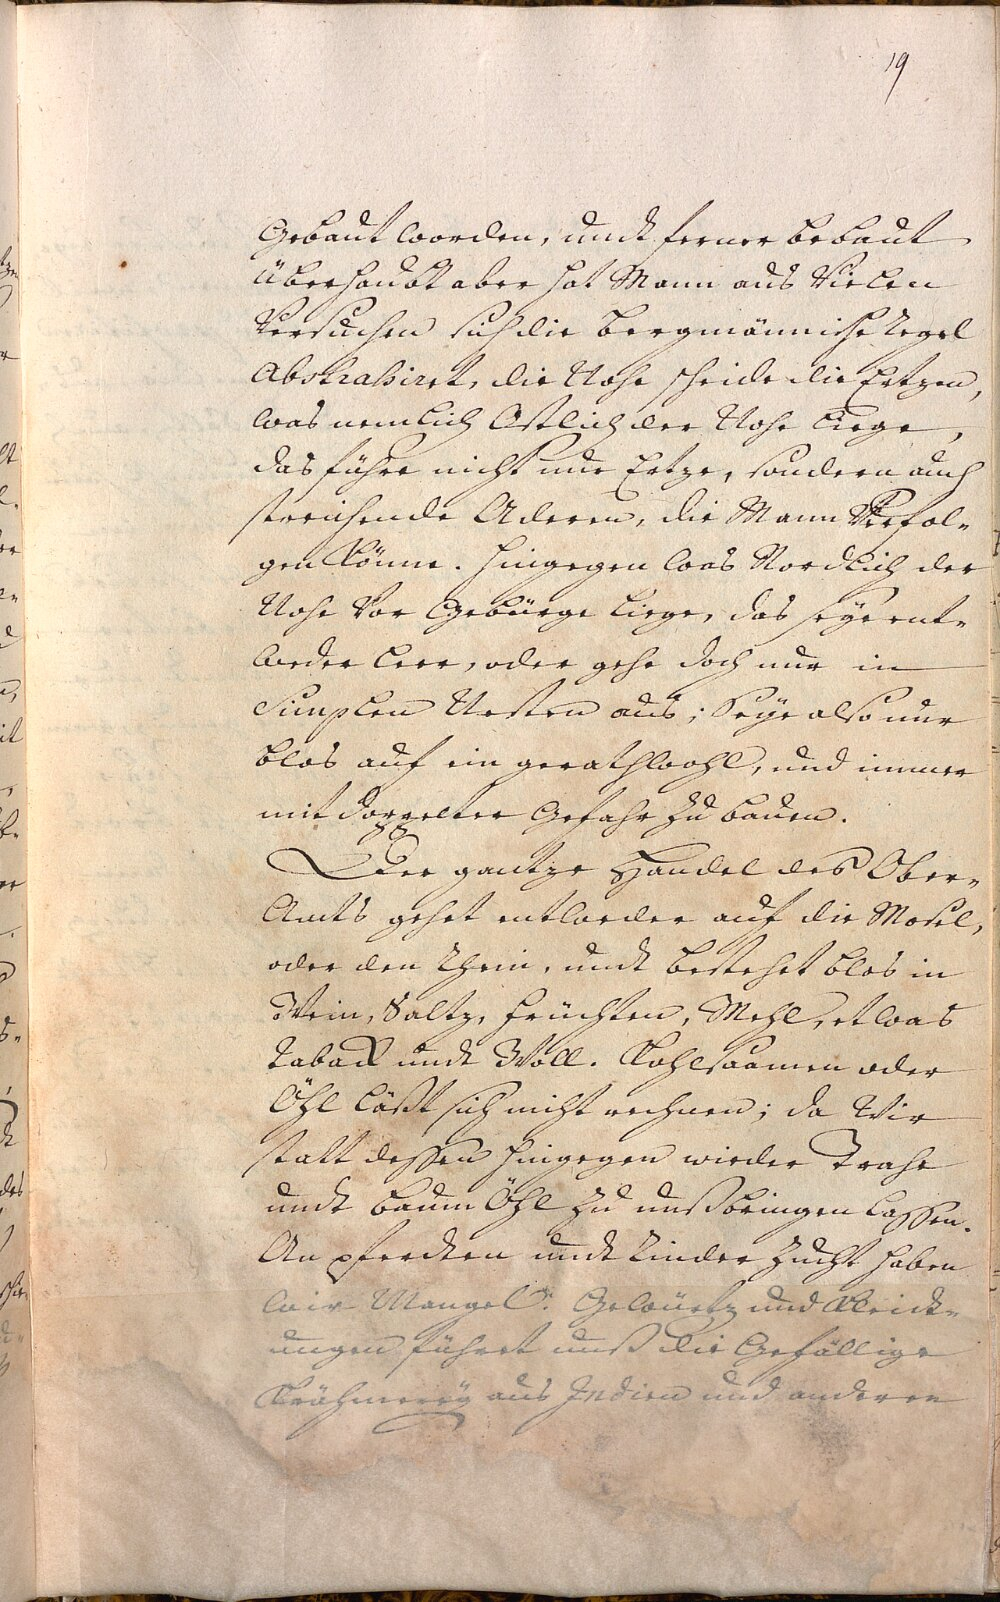 19
Gebaut worden, undt ferner bebaut
Überhaubt aber hat Mann aus Vielen
Versuchen sich die bergmännische Regel
Abstrahiret, die Nohe scheide die Ertzen,
was nemlich Östlich der Nohe liege,
das führe nicht nur Ertze, sondern auch
streichende Aderen, die Mann Verfol-
gen könne. hingegen was Nordlich der
Nohe Vor Gebürge liege, das seye ent-
weder leer, oder gehe doch nur in
Simplen Nesten aus; Seye also nur
blos auf ein gerathwohl, und immer
mit doppelter Gefahr zu bauen.
Der gantze Handel des Ober-
Amts gehet entweder auf die Mosel,
oder den Rhein, undt bestehet blos in
Wein, Saltz, früchten, Mehl, etwas
Taback undt Woll. Kohlsaamen oder
Öhl läßt sich nicht rechnen; da Wir
statt dessen hingegen wieder Trahn
undt baum Öhl zu unß bringen lassen.
An pferdten undt Rinder Zucht haben
wir Mangel. Gewürtz und Kleid-
ungen führet unß die Gefällige
Krähmerey aus Indien und anderen